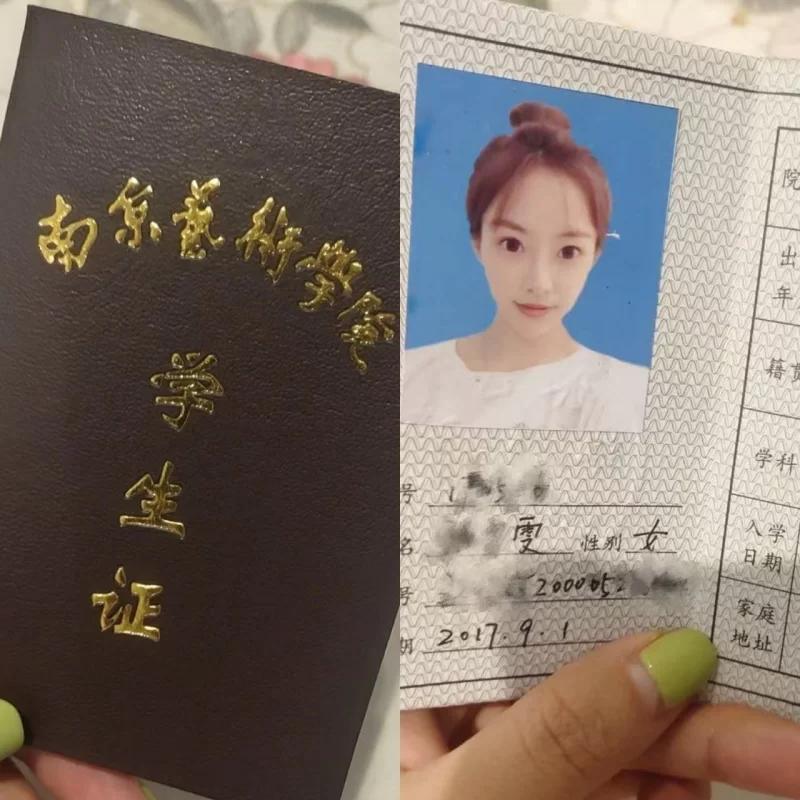 南京藝術學院
学
生
证
院
出
年
籍贯
学科
号
名 雯 性别 女
入学
日期
号 200005
期 2017.9.1
家庭
地址